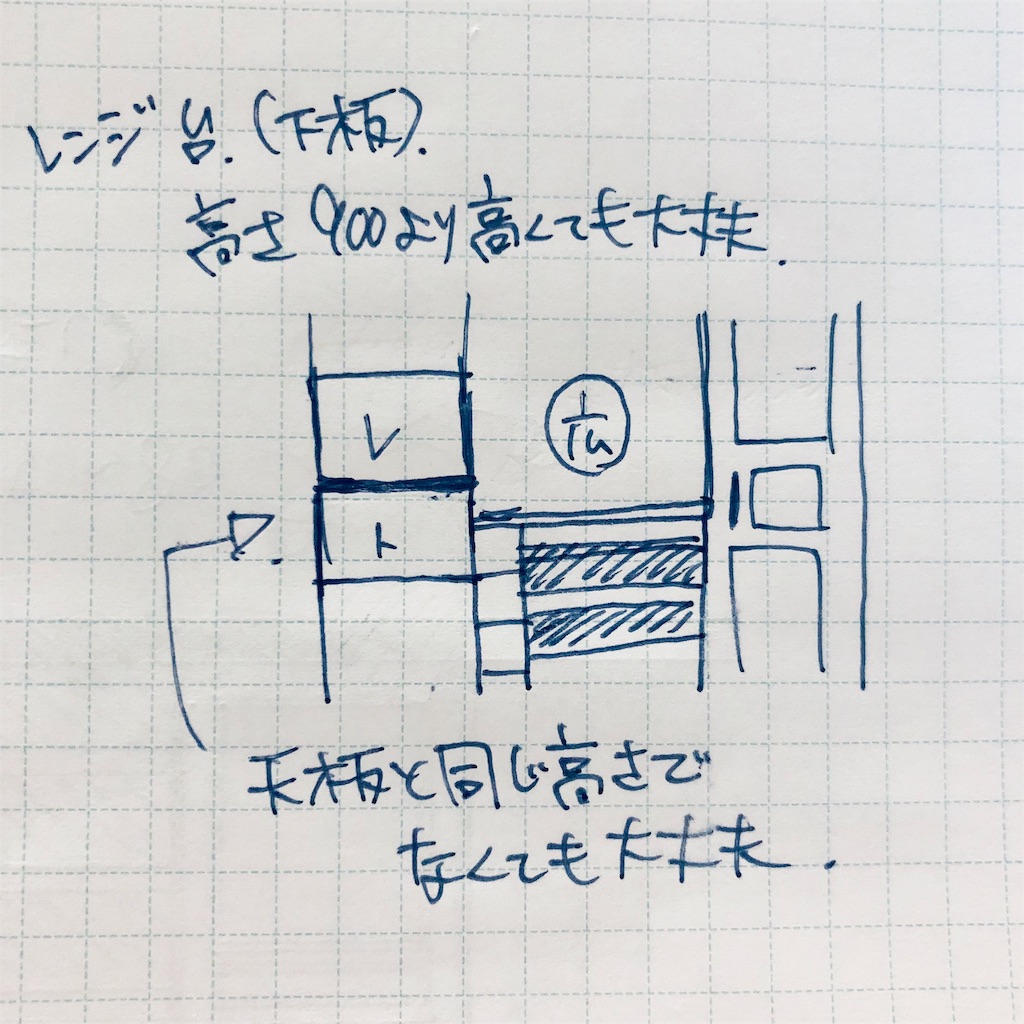 レンジ台.(下板).
高さ900より高くても大丈夫.
レ
ト
天板と同じ高さで
なくても大丈夫.